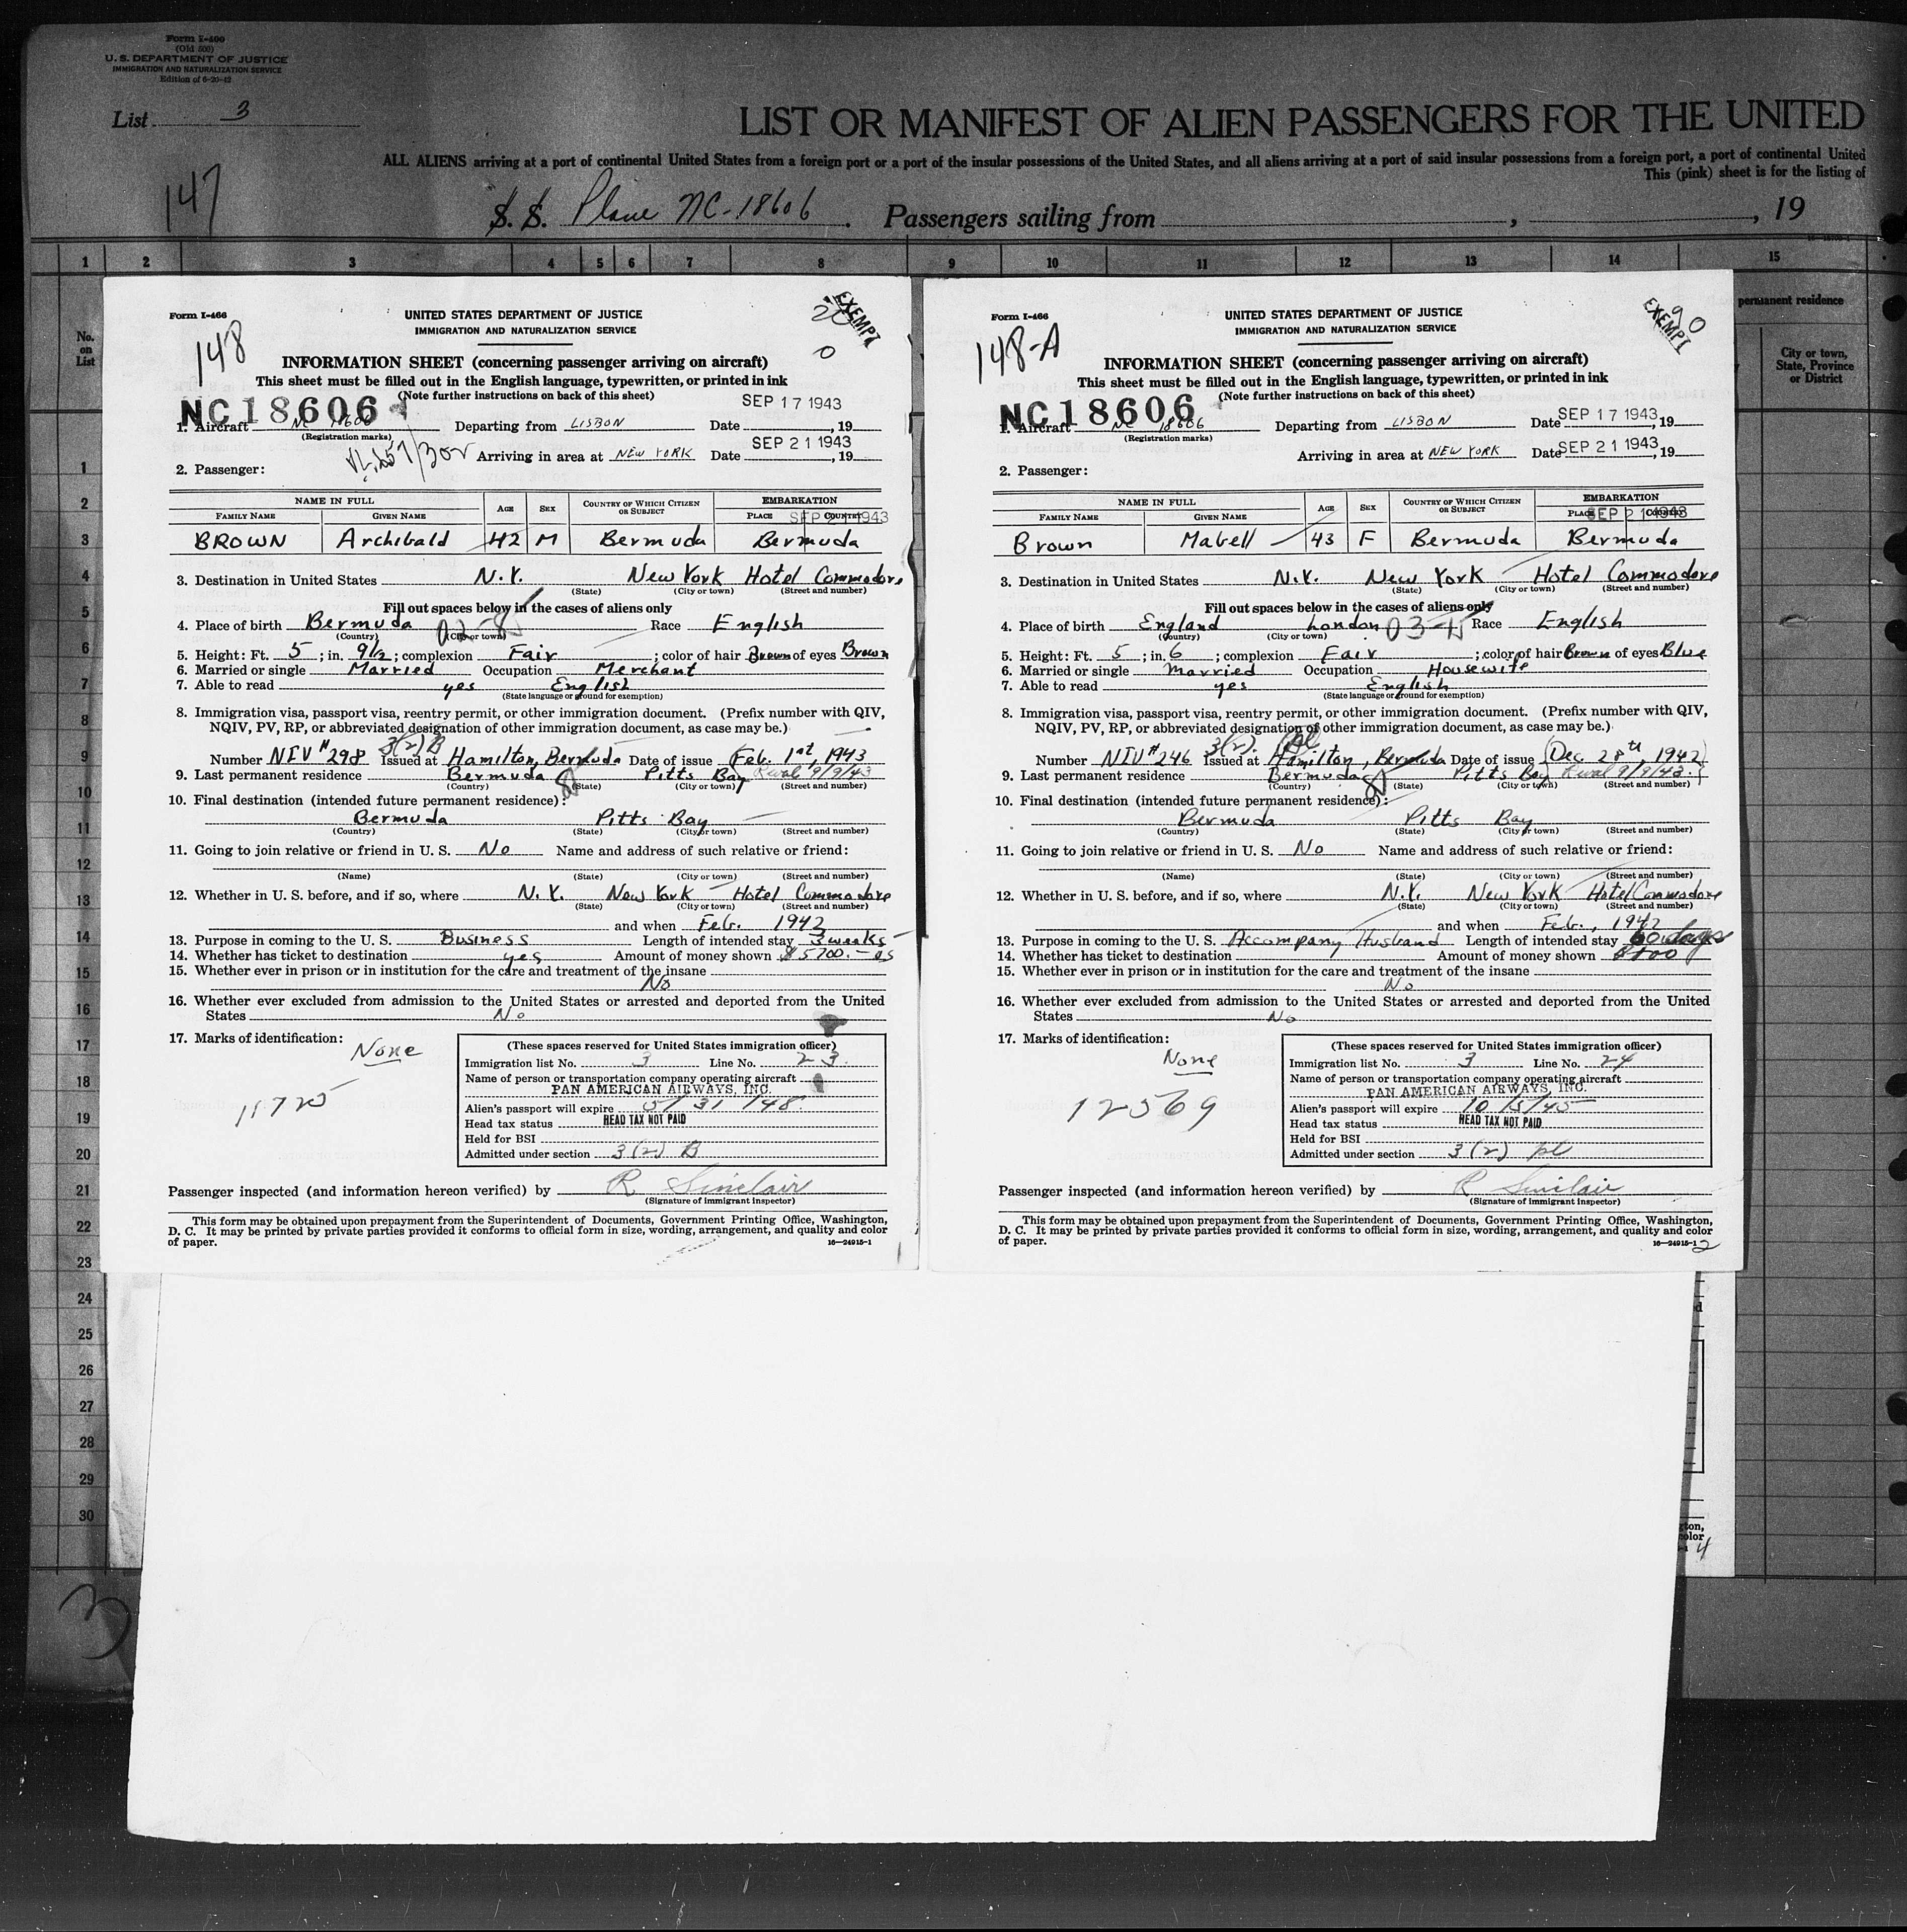 Form I-466
(Old 500)
U. S. DEPARTMENT OF JUSTICE
IMMIGRATION AND NATURALIZATION SERVICE
Edition of 6-20-42
List 3
LIST OR MANIFEST OF ALIEN PASSENGERS FOR THE UNITED
ALL ALIENS arriving at a port of continental United States from a foreign port or a port of the insular possessions of the United States, and all aliens arriving at a port of said insular possessions from a foreign port, a port of continental United
This (pink) sheet is for the listing of
147
S. S. Plane NC-18606. Passengers sailing from , , 19
1 2 3 4 5 6 7 8 9 10 11 12 13 14 15
No. on List
permanent residence
City or town, State, Province or District
1
2
3
4
5
6
7
8
9
10
11
12
13
14
15
16
17
18
19
20
21
22
23
24
25
26
27
28
29
30
3
Form I-466
148
UNITED STATES DEPARTMENT OF JUSTICE
IMMIGRATION AND NATURALIZATION SERVICE
EXEMPT
0
INFORMATION SHEET (concerning passenger arriving on aircraft)
This sheet must be filled out in the English language, typewritten, or printed in ink
(Note further instructions on back of this sheet)
NC18606
SEP 17 1943
1. Aircraft NC 18606 Departing from LISBON Date , 19
(Registration marks)
SEP 21 1943
Arriving in area at NEW YORK Date , 19
2. Passenger:
NAME IN FULL AGE SEX COUNTRY OF WHICH CITIZEN OR SUBJECT EMBARKATION
FAMILY NAME GIVEN NAME PLACE COUNTRY
SEP 21 1943
BROWN Archibald 42 M Bermuda Bermuda
3. Destination in United States N.Y. New York Hotel Commodore
(State) (City or town) (Street and number)
Fill out spaces below in the cases of aliens only
4. Place of birth Bermuda Race English
(Country) (City or town)
5. Height: Ft. 5; in. 9½; complexion Fair; color of hair Brown of eyes Brown
6. Married or single Married Occupation Merchant
7. Able to read yes English
(State language or ground for exemption)
8. Immigration visa, passport visa, reentry permit, or other immigration document. (Prefix number with QIV,
NQIV, PV, RP, or abbreviated designation of other immigration document, as case may be.)
3(2) B
Number NIV #298 Issued at Hamilton, Bermuda Date of issue Feb. 1st, 1943
9. Last permanent residence Bermuda Pitts Bay 9/9/43
(Country) (State) (City or town) (Street and number)
10. Final destination (intended future permanent residence):
Bermuda Pitts Bay
(Country) (State) (City or town) (Street and number)
11. Going to join relative or friend in U. S. No Name and address of such relative or friend:
(Name) (State) (City or town) (Street and number)
12. Whether in U. S. before, and if so, where N.Y. New York Hotel Commodore
(State) (City or town) (Street and number)
and when Feb. 1942
13. Purpose in coming to the U. S. Business Length of intended stay 3 weeks
14. Whether has ticket to destination yes Amount of money shown
15. Whether ever in prison or in institution for the care and treatment of the insane
No
16. Whether ever excluded from admission to the United States or arrested and deported from the United
States No
17. Marks of identification:
None
11725
(These spaces reserved for United States immigration officer)
Immigration list No. 3 Line No. 23
Name of person or transportation company operating aircraft
PAN AMERICAN AIRWAYS, INC.
Alien's passport will expire 5/31/48
Head tax status HEAD TAX NOT PAID
Held for BSI
Admitted under section 3(2) B
Passenger inspected (and information hereon verified) by R Sinclair
(Signature of immigrant inspector)
This form may be obtained upon prepayment from the Superintendent of Documents, Government Printing Office, Washington,
D. C. It may be printed by private parties provided it conforms to official form in size, wording, arrangement, and quality and color
of paper.
16—24915-1
Form I-466
148-A
UNITED STATES DEPARTMENT OF JUSTICE
IMMIGRATION AND NATURALIZATION SERVICE
EXEMPT
90
INFORMATION SHEET (concerning passenger arriving on aircraft)
This sheet must be filled out in the English language, typewritten, or printed in ink
(Note further instructions on back of this sheet)
NC18606
SEP 17 1943
1. Aircraft NC 18606 Departing from LISBON Date , 19
(Registration marks)
SEP 21 1943
Arriving in area at NEW YORK Date , 19
2. Passenger:
NAME IN FULL AGE SEX COUNTRY OF WHICH CITIZEN OR SUBJECT EMBARKATION
FAMILY NAME GIVEN NAME PLACE COUNTRY
SEP 21 1943
Brown Mabell 43 F Bermuda Bermuda
3. Destination in United States N.Y. New York Hotel Commodore
(State) (City or town) (Street and number)
Fill out spaces below in the cases of aliens only
4. Place of birth England London Race English
(Country) (City or town)
5. Height: Ft. 5; in. 6; complexion Fair; color of hair Brown of eyes Blue
6. Married or single Married Occupation Housewife
7. Able to read yes English
(State language or ground for exemption)
8. Immigration visa, passport visa, reentry permit, or other immigration document. (Prefix number with QIV,
NQIV, PV, RP, or abbreviated designation of other immigration document, as case may be.)
3(2). pl
Number NIV #246 Issued at Hamilton, Bermuda Date of issue Dec. 28th, 1942
9. Last permanent residence Bermuda Pitts Bay 9/9/43
(Country) (State) (City or town) (Street and number)
10. Final destination (intended future permanent residence):
Bermuda Pitts Bay
(Country) (State) (City or town) (Street and number)
11. Going to join relative or friend in U. S. No Name and address of such relative or friend:
(Name) (State) (City or town) (Street and number)
12. Whether in U. S. before, and if so, where N.Y. New York Hotel Commodore
(State) (City or town) (Street and number)
and when Feb., 1942
13. Purpose in coming to the U. S. Accompany Husband Length of intended stay 60 days
14. Whether has ticket to destination Amount of money shown
15. Whether ever in prison or in institution for the care and treatment of the insane
No
16. Whether ever excluded from admission to the United States or arrested and deported from the United
States No
17. Marks of identification:
None
12569
(These spaces reserved for United States immigration officer)
Immigration list No. 3 Line No. 24
Name of person or transportation company operating aircraft
PAN AMERICAN AIRWAYS, INC.
Alien's passport will expire 10/5/45
Head tax status HEAD TAX NOT PAID
Held for BSI
Admitted under section 3(2) pl
Passenger inspected (and information hereon verified) by R Sinclair
(Signature of immigrant inspector)
This form may be obtained upon prepayment from the Superintendent of Documents, Government Printing Office, Washington,
D. C. It may be printed by private parties provided it conforms to official form in size, wording, arrangement, and quality and color
of paper.
16—24915-1
2
4